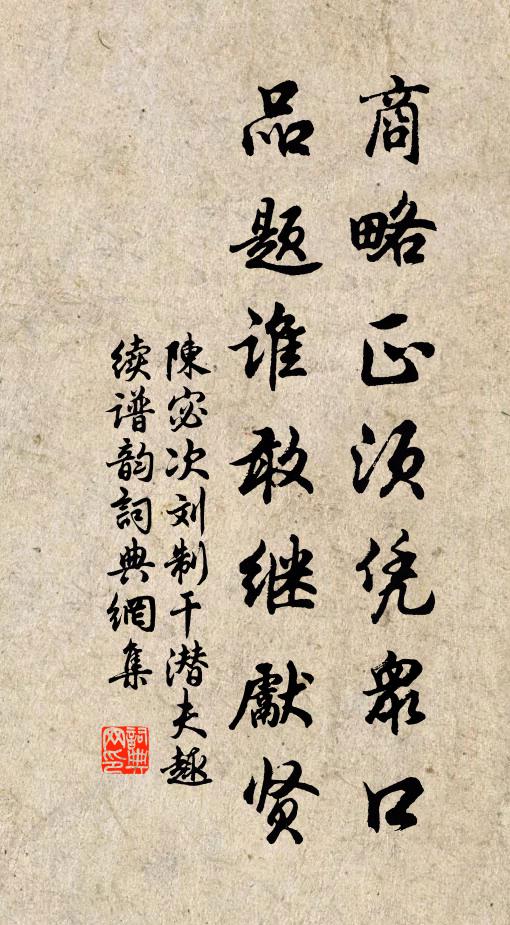 商略正须凭眾口
品题谁敢继獻贤
陳宓次刘制干潜夫趣
续谱韵詞典網集
詞典網印